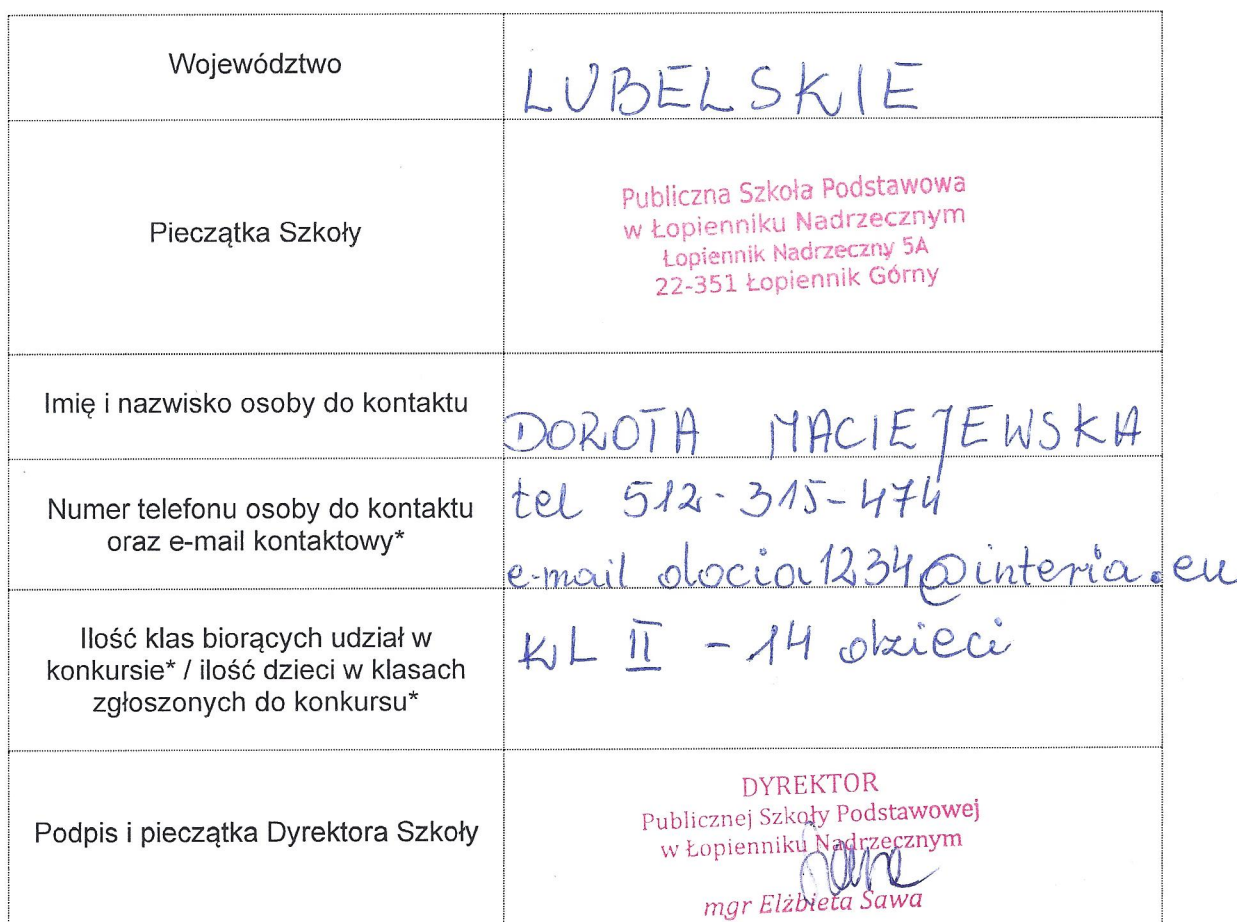 Województwo
LUBELSKIE
Pieczątka Szkoły
Publiczna Szkoła Podstawowa
w Łopienniku Nadrzecznym
Łopiennik Nadrzeczny 5A
22-351 Łopiennik Górny
Imię i nazwisko osoby do kontaktu
DOROTA MACIEJEWSKA
Numer telefonu osoby do kontaktu
oraz e-mail kontaktowy*
tel 512-315-474
e-mail docia1234@interia.eu
Ilość klas biorących udział w
konkursie* / ilość dzieci w klasach
zgłoszonych do konkursu*
KL II - 14 dzieci
Podpis i pieczątka Dyrektora Szkoły
DYREKTOR
Publicznej Szkoły Podstawowej
w Łopienniku Nadrzecznym
Sawa
mgr Elżbieta Sawa